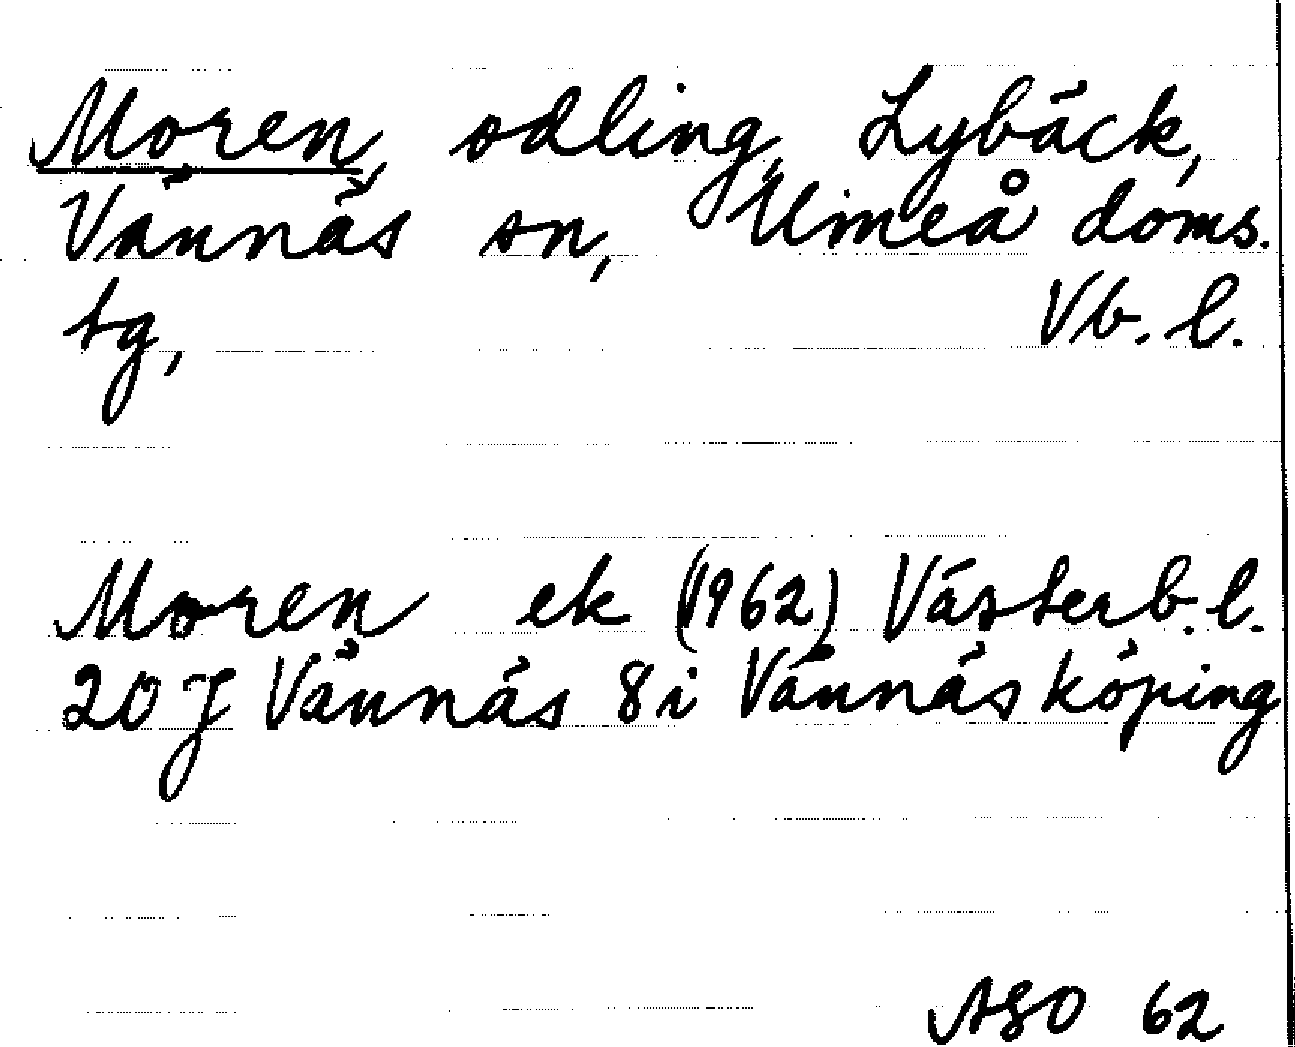 Moren, odling, Lybäck,
Vännäs sn, Umeå doms.
tg, Vb. l.
Moren ek (1962) Västerb. l.
20 J Vännäs 8 i Vännäs köping
ASO 62